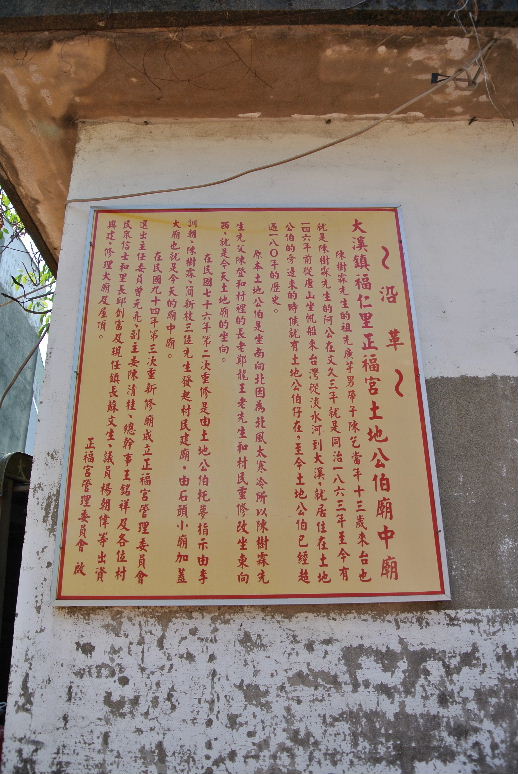 ～沿革～
大溪鎮福仁里正福宮土地公伯廟中廟
陳樹霖先生的祖先廣芋男帶子陳乞當年十三歲來台也
就是陳樹霖先生的阿公在文久三年就是同治一八六三年至今有
一四六年前從唐山坐帆船來台灣從淡水河到大溪，就居住在土地
公伯的旁邊來的時候就有土地公伯仔在，至今土地公伯已經超
過一八○年的歷史。
原本土地公伯是坐南向北因為北風太寒冷所以陳樹霖先
生先父陳瑩和村裡的長老邱龍王老先生和村民重修改坐東向
西、就是今天土地廟的坐向。
在民國七十六年第二次重修是由土地公伯托夢指示由李
訓朝、陳樹霖、簡新枝三位先生發起村民建廟，由石頭小廟加蓋
大廟也就是今天的廟中廟。
在民國九十四年第三次重新修廟成立正福宮管理委員會
選出主任委員曾元亮、副主委陳清桂、總幹事王銘祥及各位村
民眾信士和里長邱創富及現任鎮長蘇文生、議員楊朝偉等出資
興建、修理大廟及屋頂。
正福宮管理委員會 啟